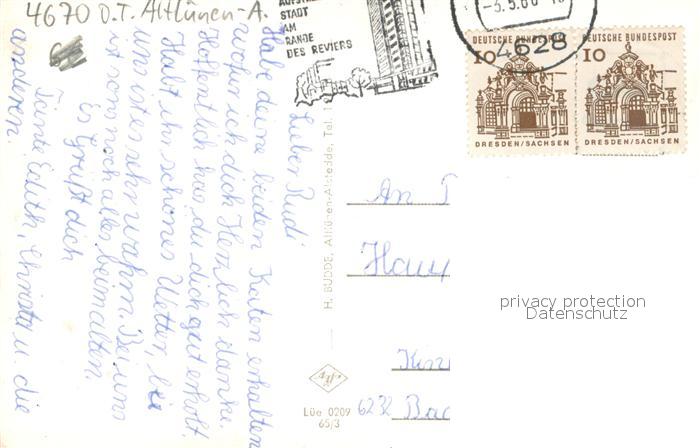 4670 O.T. Altlünen-A.
STADT
AM
RANDE
DES REVIERS
-3.5.66
4628
10
DEUTSCHE BUNDESPOST
DRESDEN/SACHSEN
10
DEUTSCHE BUNDESPOST
DRESDEN/SACHSEN
Lieber Rudi
Habe deine beiden Karten erhalten
wofür ich dich Herzlich danke.
Hoffentlich has du dich gut erholt.
Habt ihr schönes Wetter, bei
uns ist es sehr wahrm. Bei uns
ist sonst noch alles beim alten.
Es Grüßt dich
Tante Edith, Christa u die
anderen.
H. BUDDE, Altlünen-Alstedde, Tel.
Agfa
Lüe 0209
65/3
An
Haup
Kin
6232 Bad
privacy protection
Datenschutz